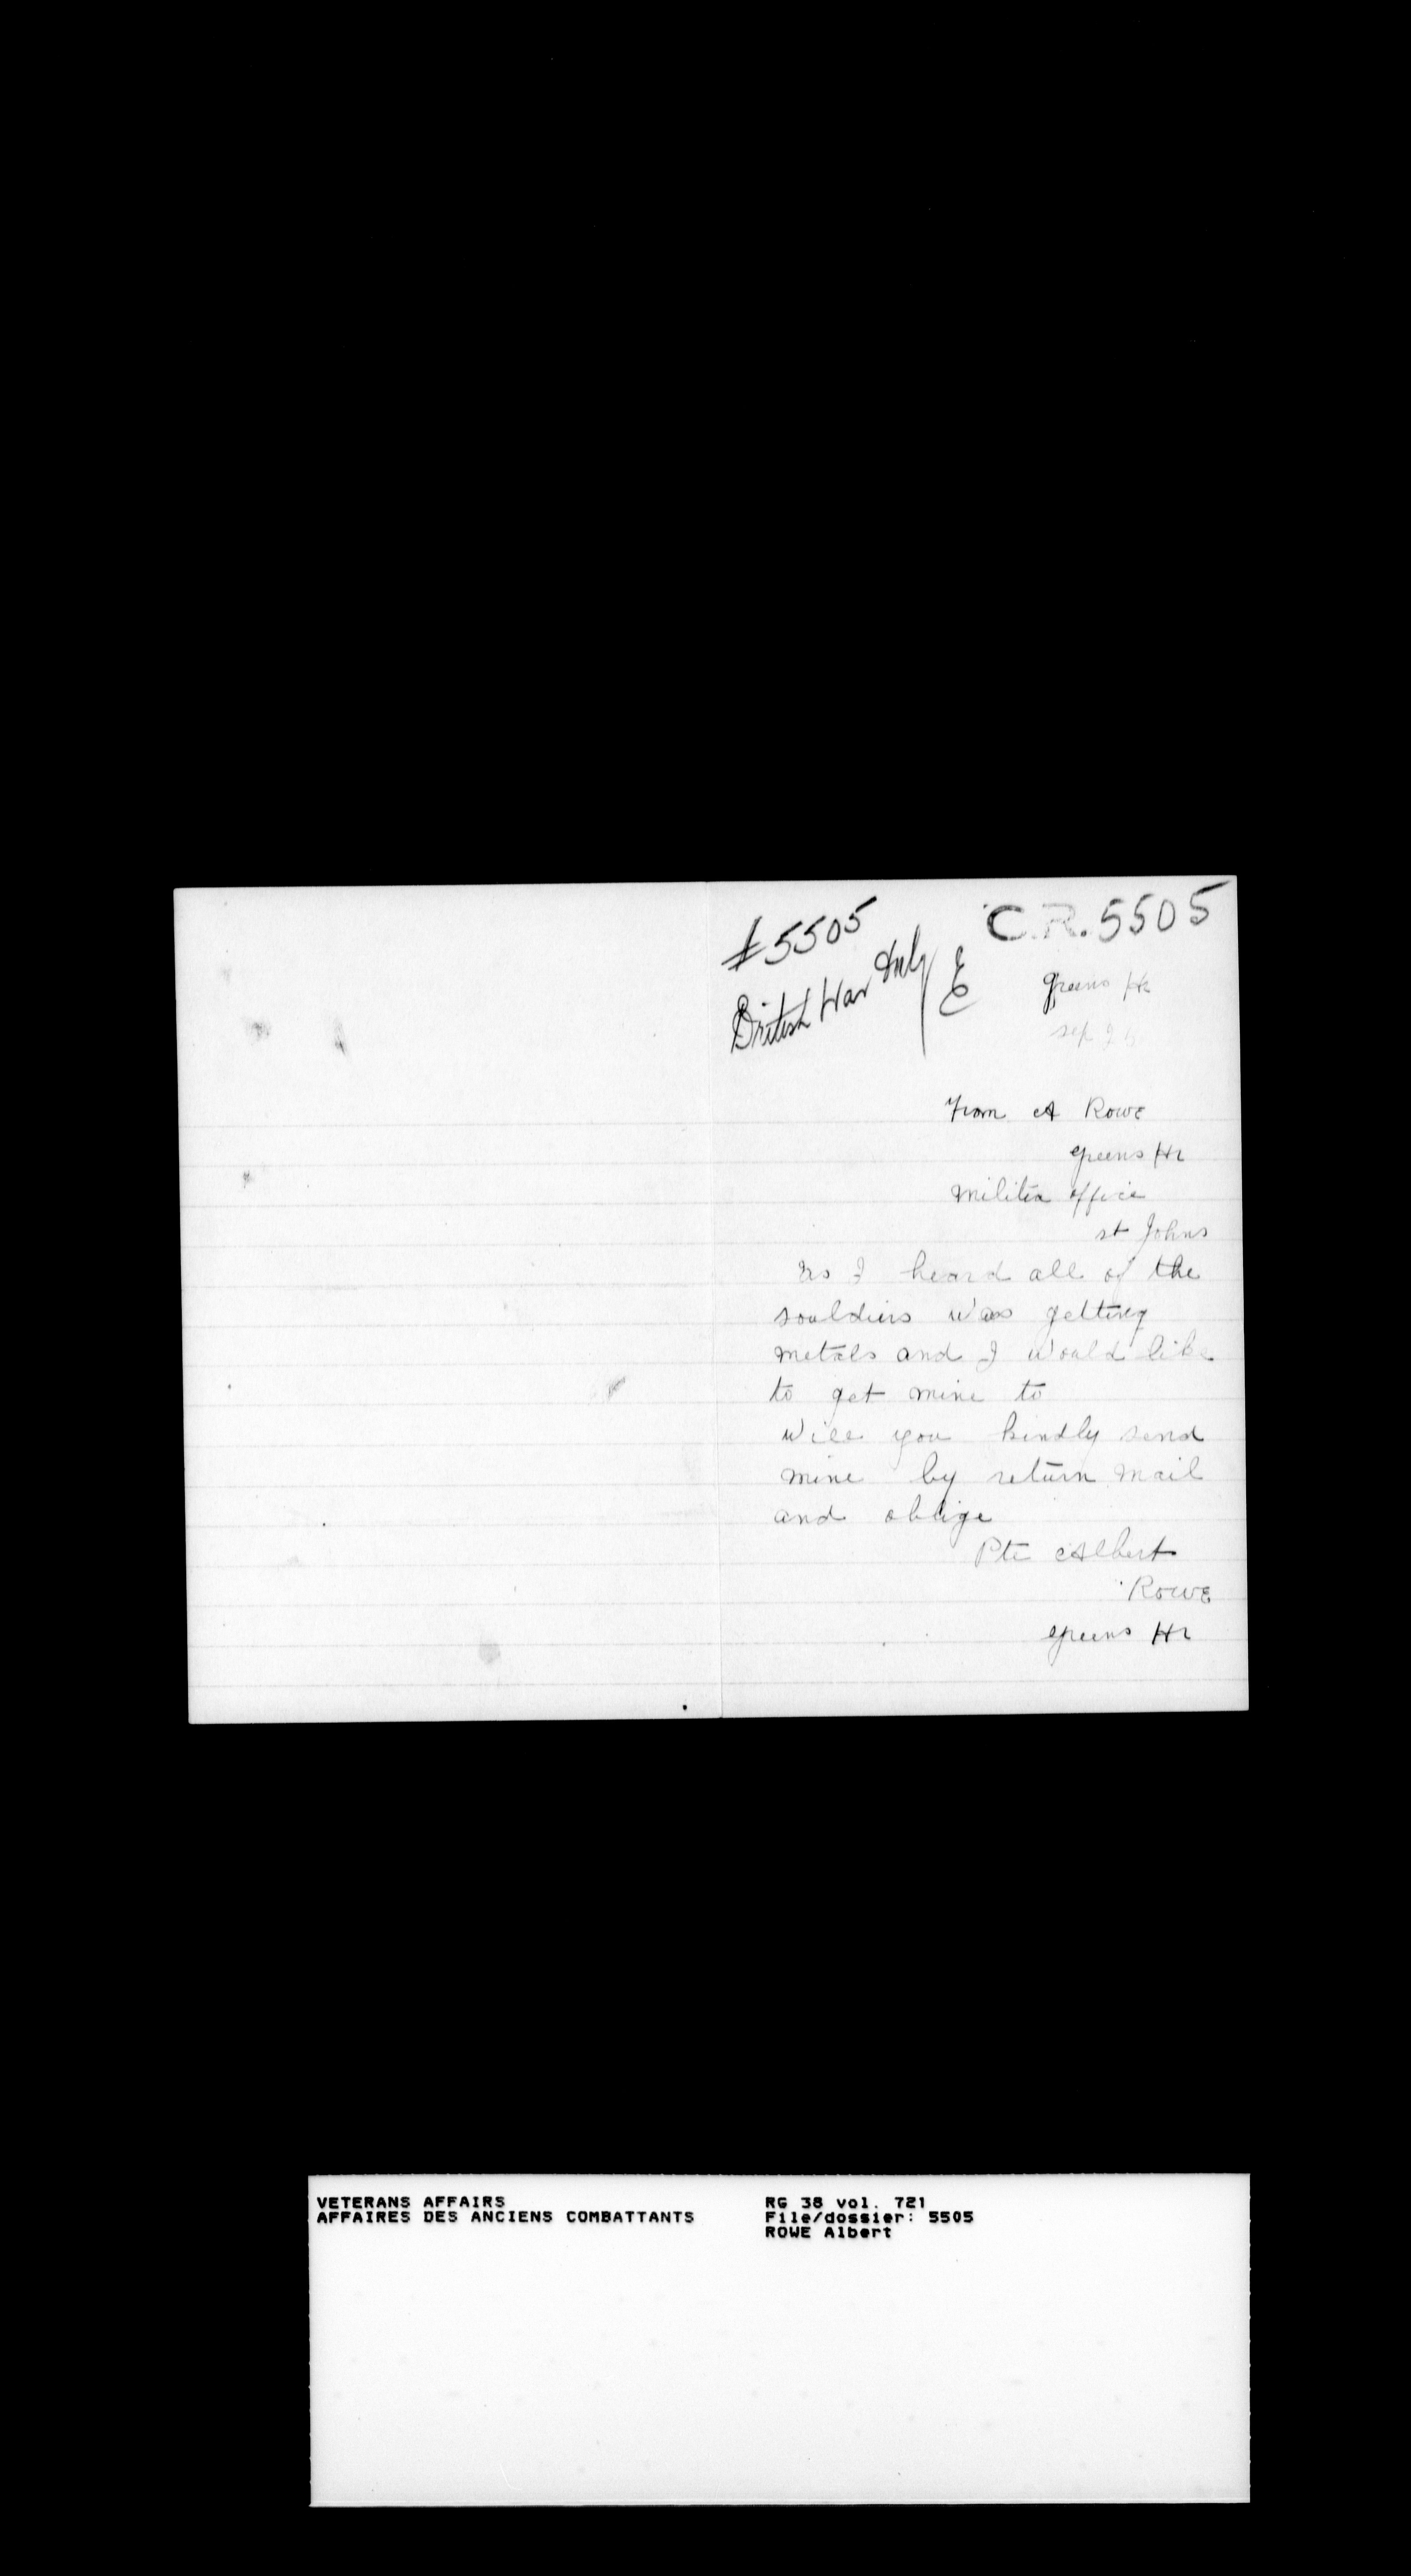 #5505
British War only E
C.R. 5505
greens Hr
sep 26
From A Rowe
greens Hr
militia office
st Johns
As I heard all of the
souldiers was getting
metals and I would like
to get mine to
will you kindly send
mine by return mail
and oblige
Pte Albert
Rowe
greens Hr
VETERANS AFFAIRS
AFFAIRES DES ANCIENS COMBATTANTS
RG 38 vol. 721
File/dossier: 5505
ROWE Albert